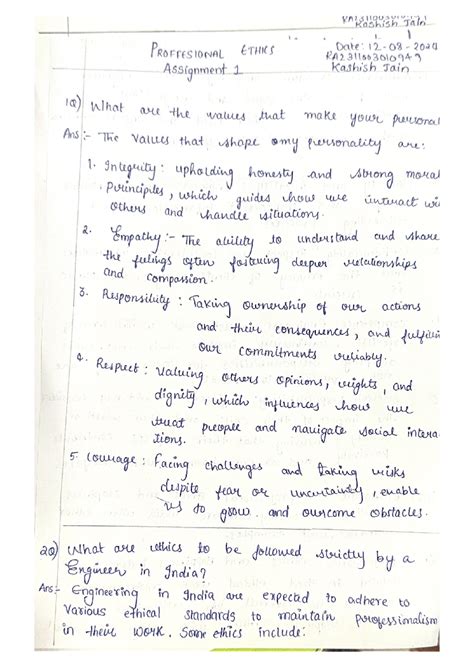 Kashish Jain
PROFFESIONAL ETHICS
Date: 12-08-2024
Assignment 1
RA2311003010949
Kashish Jain
1Q) What are the values that make your personal
Ans:- The Values that shape my personality are:
1. Integrity: upholding honesty and strong moral
Principles, which guides how we interact wi
others and handle situations.
2. Empathy:- The ability to understand and share
the feelings often fostering deeper relationships
and compassion.
3. Responsibility: Taking ownership of our actions
and their consequences, and fulfilli
our commitments reliably.
4. Respect: Valuing others opinions, rights, and
dignity, which influences how we
treat people and navigate social intera
tions.
5. Courage: Facing challenges and taking risks
despite fear or uncertainity, enable
us to grow and overcome obstacles.
2Q) What are ethics to be followed strictly by a
Engineer in India?
Ans:- Engineering in India are expected to adhere to
Various ethical standards to maintain professionalism
in their work. Some ethics include: